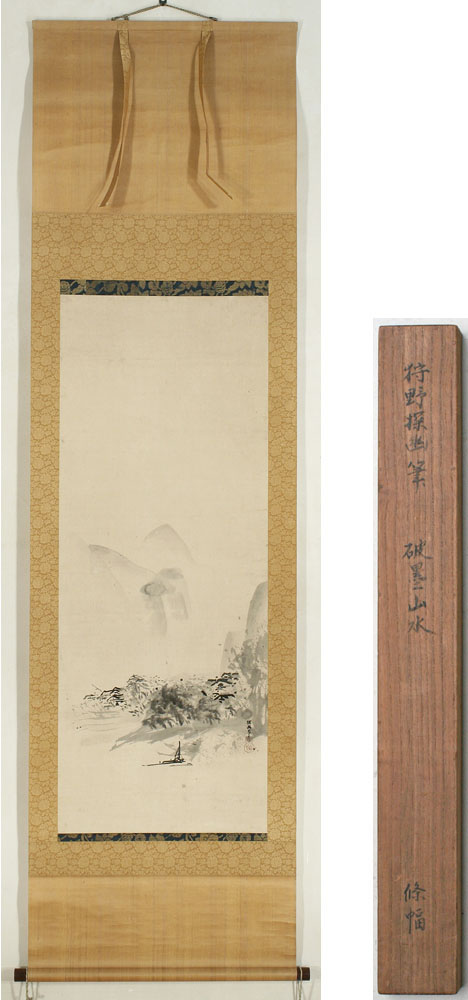 狩野探幽筆
破墨山水
條幅